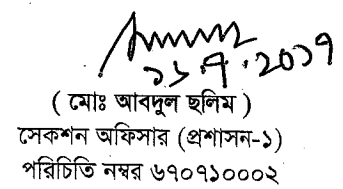 ১১.৭.২০১৭
( মোঃ আবদুল ছলিম )
সেকশন অফিসার (প্রশাসন-১)
পরিচিতি নম্বর ৬৭০৭১০০০২